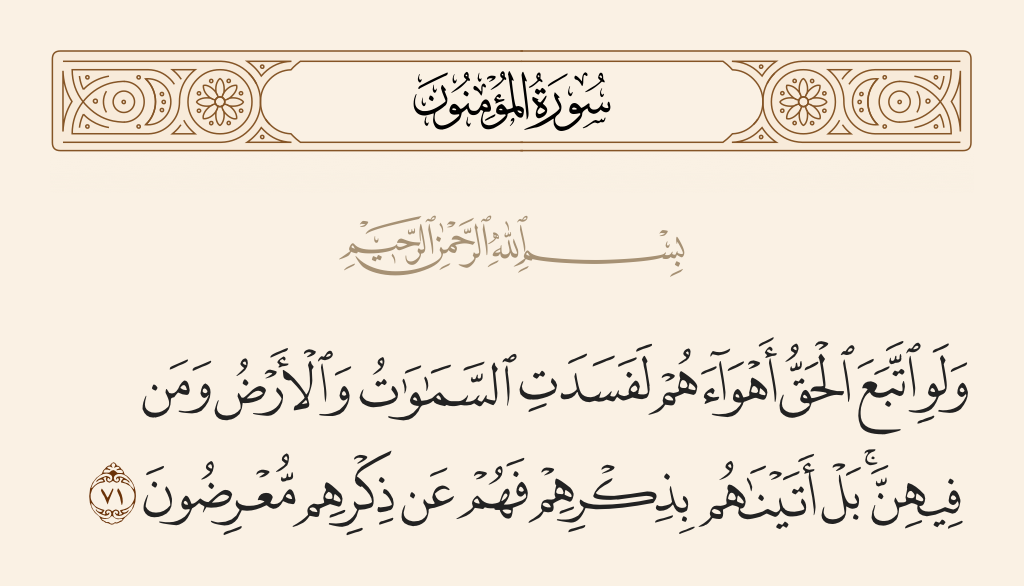 سُورَةُ الْمُؤْمِنُونَ
بِسْمِ ٱللَّهِ ٱلرَّحْمَٰنِ ٱلرَّحِيمِ
وَلَوِ ٱتَّبَعَ ٱلْحَقُّ أَهْوَآءَهُمْ لَفَسَدَتِ ٱلسَّمَٰوَٰتُ وَٱلْأَرْضُ وَمَن
فِيهِنَّ ۚ بَلْ أَتَيْنَٰهُم بِذِكْرِهِمْ فَهُمْ عَن ذِكْرِهِم مُّعْرِضُونَ ٧١